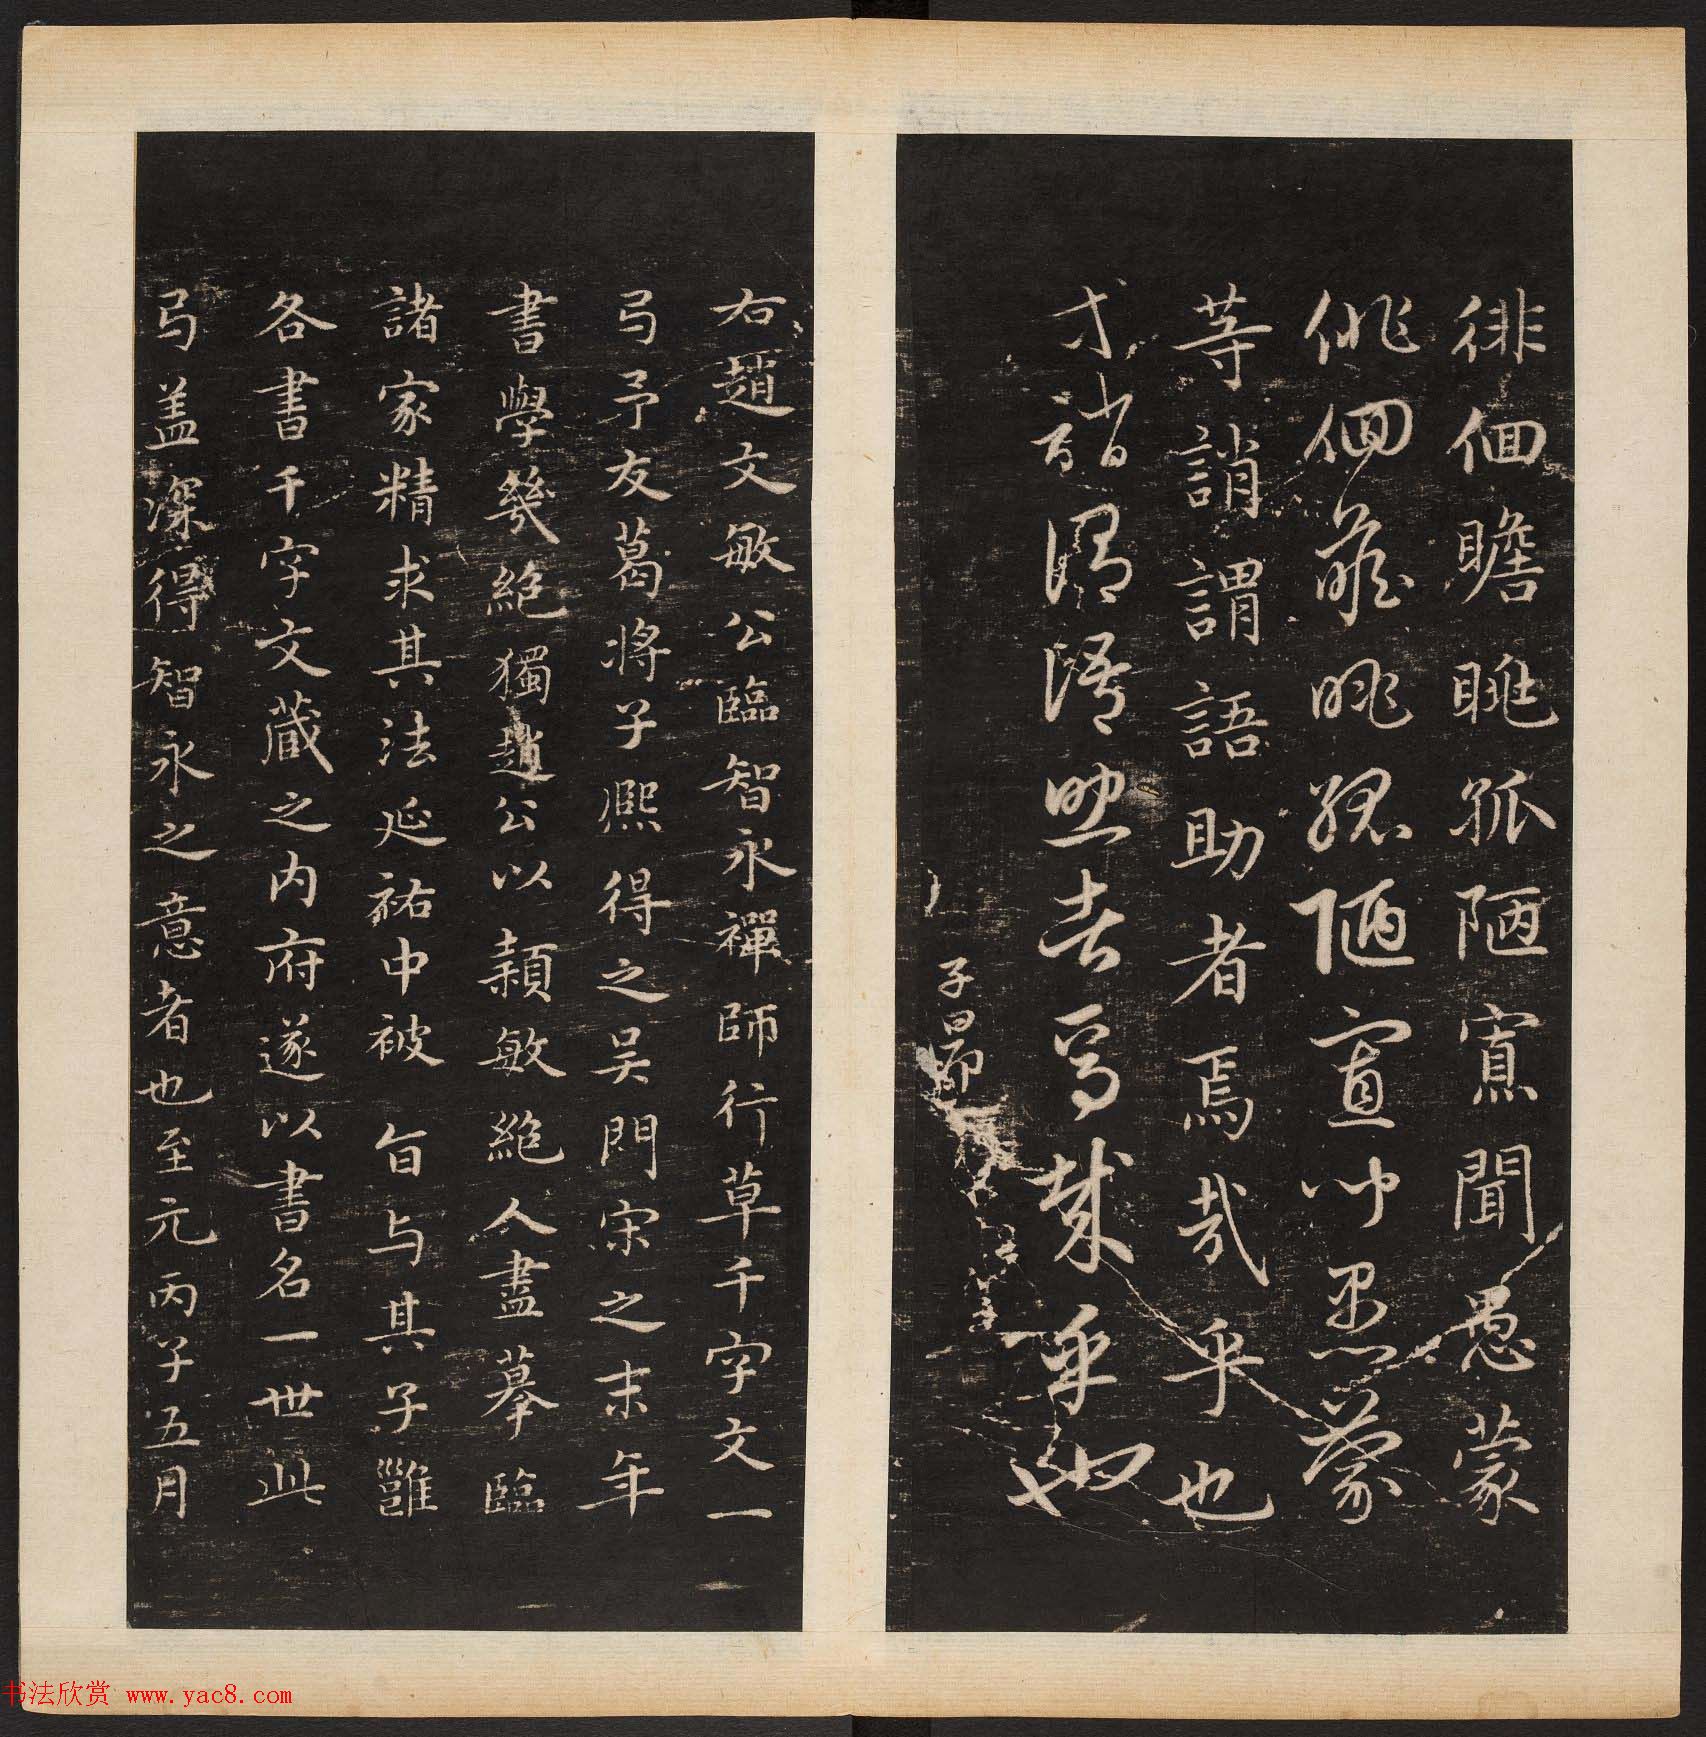 徘佪瞻眺孤陋寡聞愚蒙
徘佪瞻眺孤陋寡聞愚蒙
等誚謂語助者焉哉乎也
等誚謂語助者焉哉乎也
子昂
右趙文敏公臨智永禪師行草千字文一
弓予友葛將子熈得之吴門宋之末年
書學幾絶獨趙公以穎敏絶人盡摹臨
諸家精求其法延祐中被旨与其子雝
各書千字文藏之内府遂以書名一世此
弓盖深得智永之意者也至元丙子五月
书法欣赏 www.yac8.com